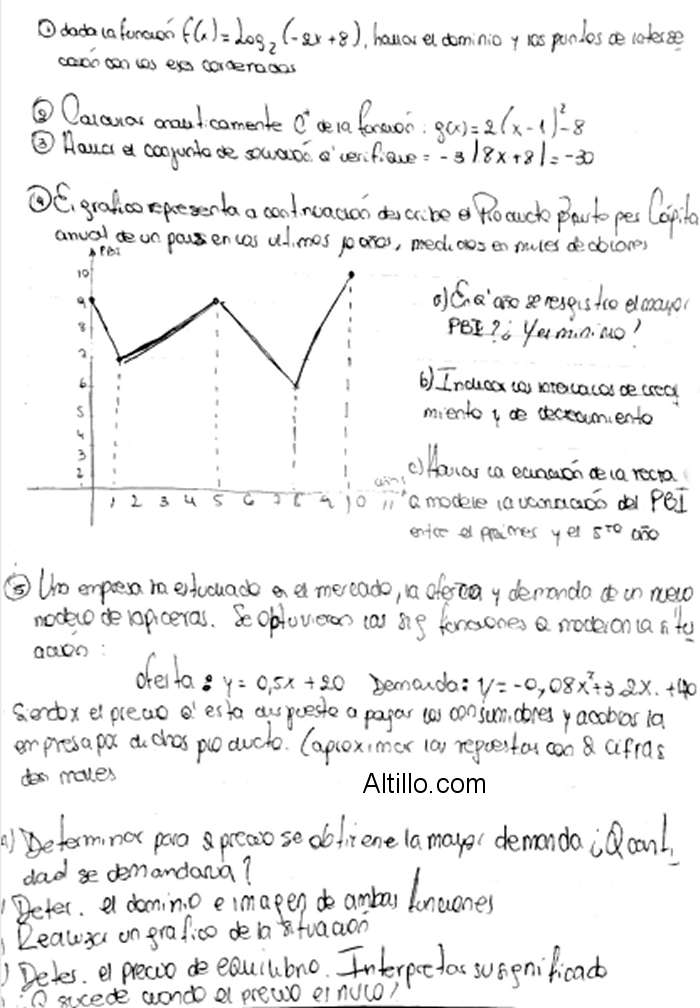 ① dada la función f(x)=Log₂(-2x+8), hallar el dominio y los puntos de interse
cción con los ejes coordenados
② Calcular analíticamente C⁺ de la función: g(x)=2(x-1)²-8
③ Hallar el conjunto de solución q' verifique = -3|8x+8|=-30
④ El grafico representa a continuación describe el Producto Bruto per Cápita
anual de un país en los ultimos 10 años, medidos en miles de dolares
PBI
10
9
8
7
6
5
4
3
2
1 2 3 4 5 6 7 8 9 10 11
años
a) En q' año se resgistro el mayor
PBI? ¿Y el minimo?
b) Indicar los intervalos de creci
miento y de decrecimiento
c) Hallar la ecuación de la recta
q modele la variación del PBI
entre el primer y el 5to año
⑤ Una empresa ha estudiado en el mercado, la oferta y demanda de un nuevo
modelo de lapiceras. Se obtuvieron las sig funciones q modelan la situ
ación:
Oferta: y = 0,5x + 20 Demanda: y = -0,08x²+3,2x.+40
Siendo x el precio q' esta dispuesto a pagar los consumidores y a cobrar la
empresa por dichos producto. (aproximar las repuestas con 2 cifras
decimales
Altillo.com
a) Determinar para q precio se obtiene la mayor demanda ¿Q canti
dad se demandaria?
) Deter. el dominio e imagen de ambas funciones
) Realizar un grafico de la situación
) Deter. el precio de equilibrio. Interpretar su significado
¿Q sucede cuando el precio es nulo?